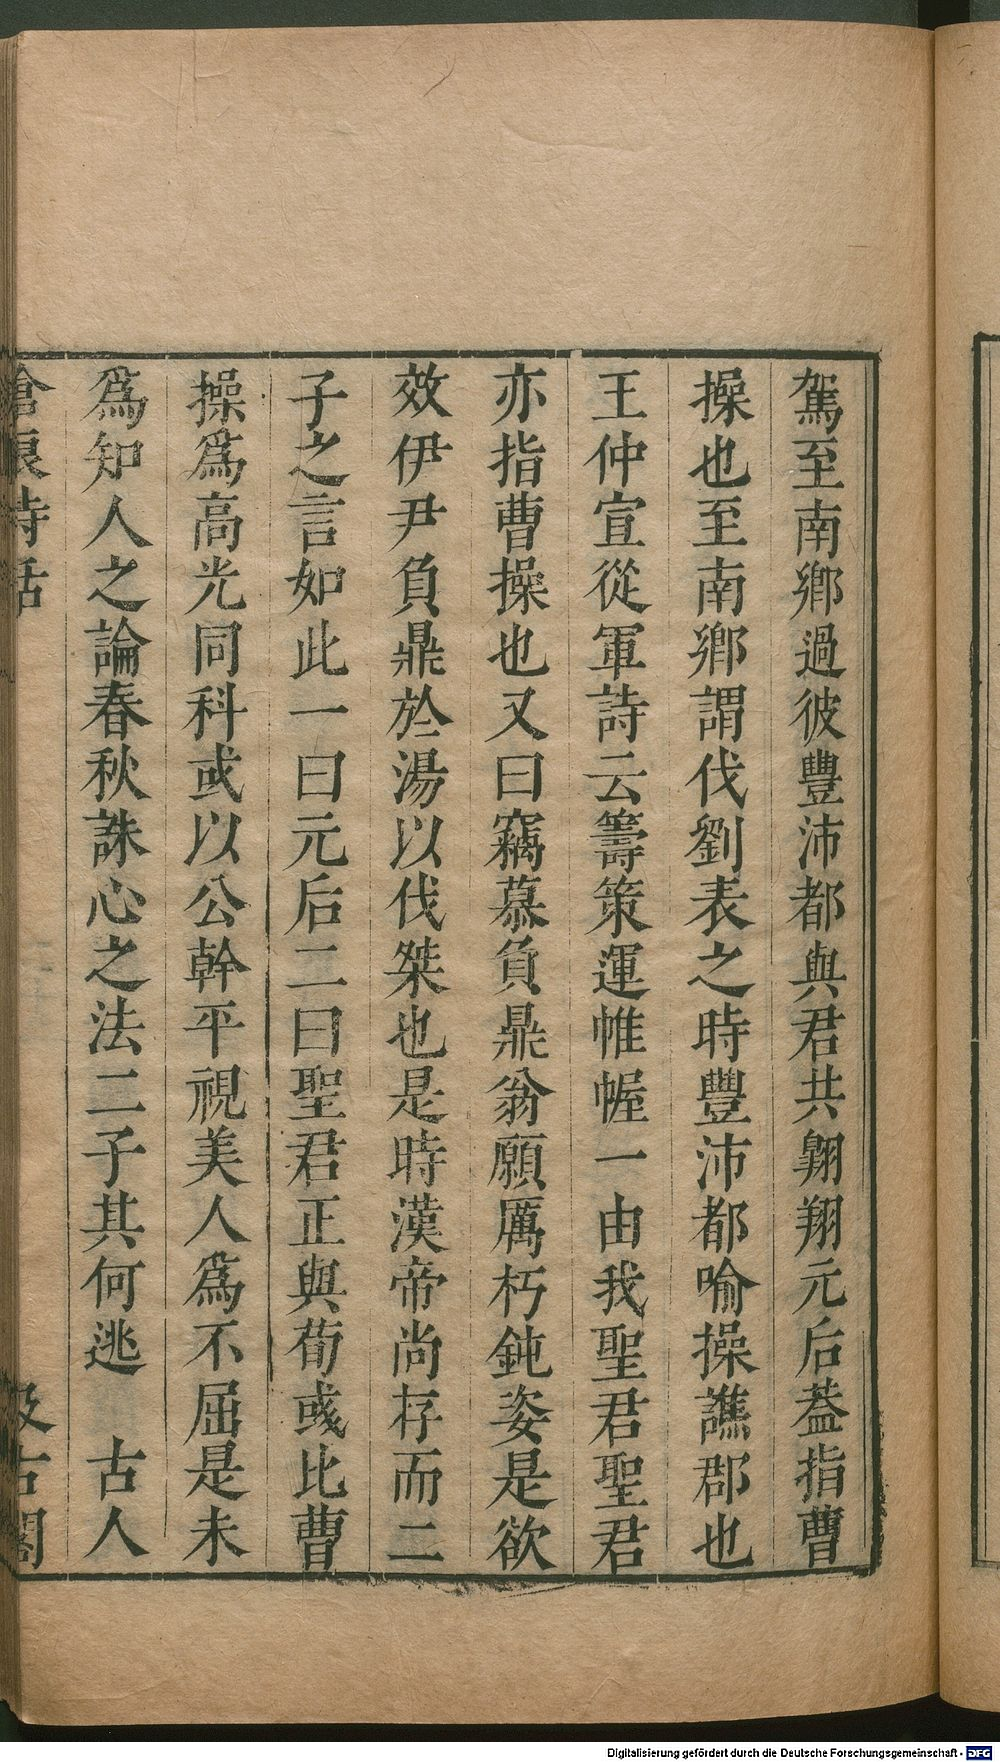 駕至南鄉過彼豐沛都與君共翺翔元后葢指曹
操也至南鄉謂伐劉表之時豐沛都喻操譙郡也
王仲宣從軍詩云籌策運帷幄一由我聖君聖君
亦指曹操也又曰竊慕負鼎翁願厲朽鈍姿是欲
效伊尹負鼎於湯以伐桀也是時漢帝尚存而二
子之言如此一曰元后二曰聖君正與荀彧比曹
操爲高光同科或以公幹平視美人爲不屈是未
爲知人之論春秋誅心之法二子其何逃　古人
滄浪詩話　汲古閣
Digitalisierung gefördert durch die Deutsche Forschungsgemeinschaft - DFG